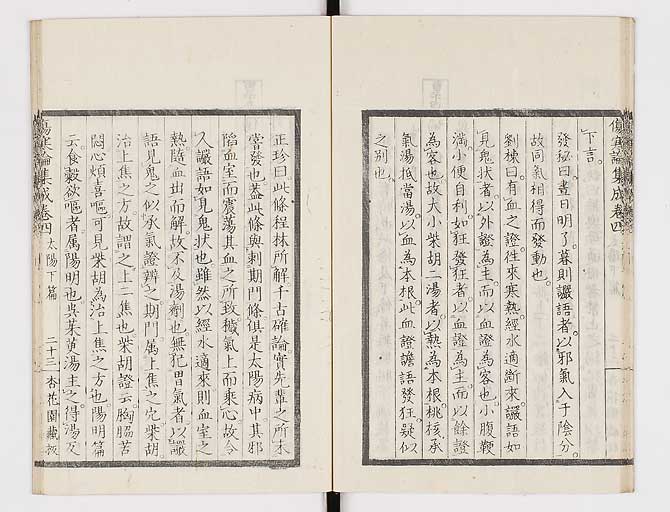 傷寒論集成卷四
下言。
發秘曰晝日明了。暮則讝語者。以邪氣入于陰分。
故同氣相得而發動也。
劉棟曰。有血之證。往來寒熱。經水適斷來。讝語如
見鬼狀者。以外證為主。而以血證為客也。小腹鞕
滿。小便自利。如狂發狂者。以血證為主。而以餘證
為客也。故大小柴胡二湯者。以熱為本根。桃核承
氣湯抵當湯。以血為本根。此血證譫語發狂。疑似
之別也。
正珍曰此條程林所解千古確論實先輩之所未
嘗發也蓋此條與刺期門條俱是太陽病中其邪
陷血室而震蕩其血之所致穢氣上而乘心故令
人讝語如見鬼狀也雖然以經水適來則血室之
熱隨血出而解。故不及湯劑也。無犯胃氣者。以讝
語見鬼之似承氣證辨之。期門屬上焦之穴柴胡
治上焦之方故謂之上二焦也柴胡證云胸脇苦
悶心煩喜嘔可見柴胡為治上焦之方也陽明篇
云食穀欲嘔者屬陽明也吳茱萸湯主之得湯反
傷寒論集成卷四 太陽下篇 二十三 杏花園藏板